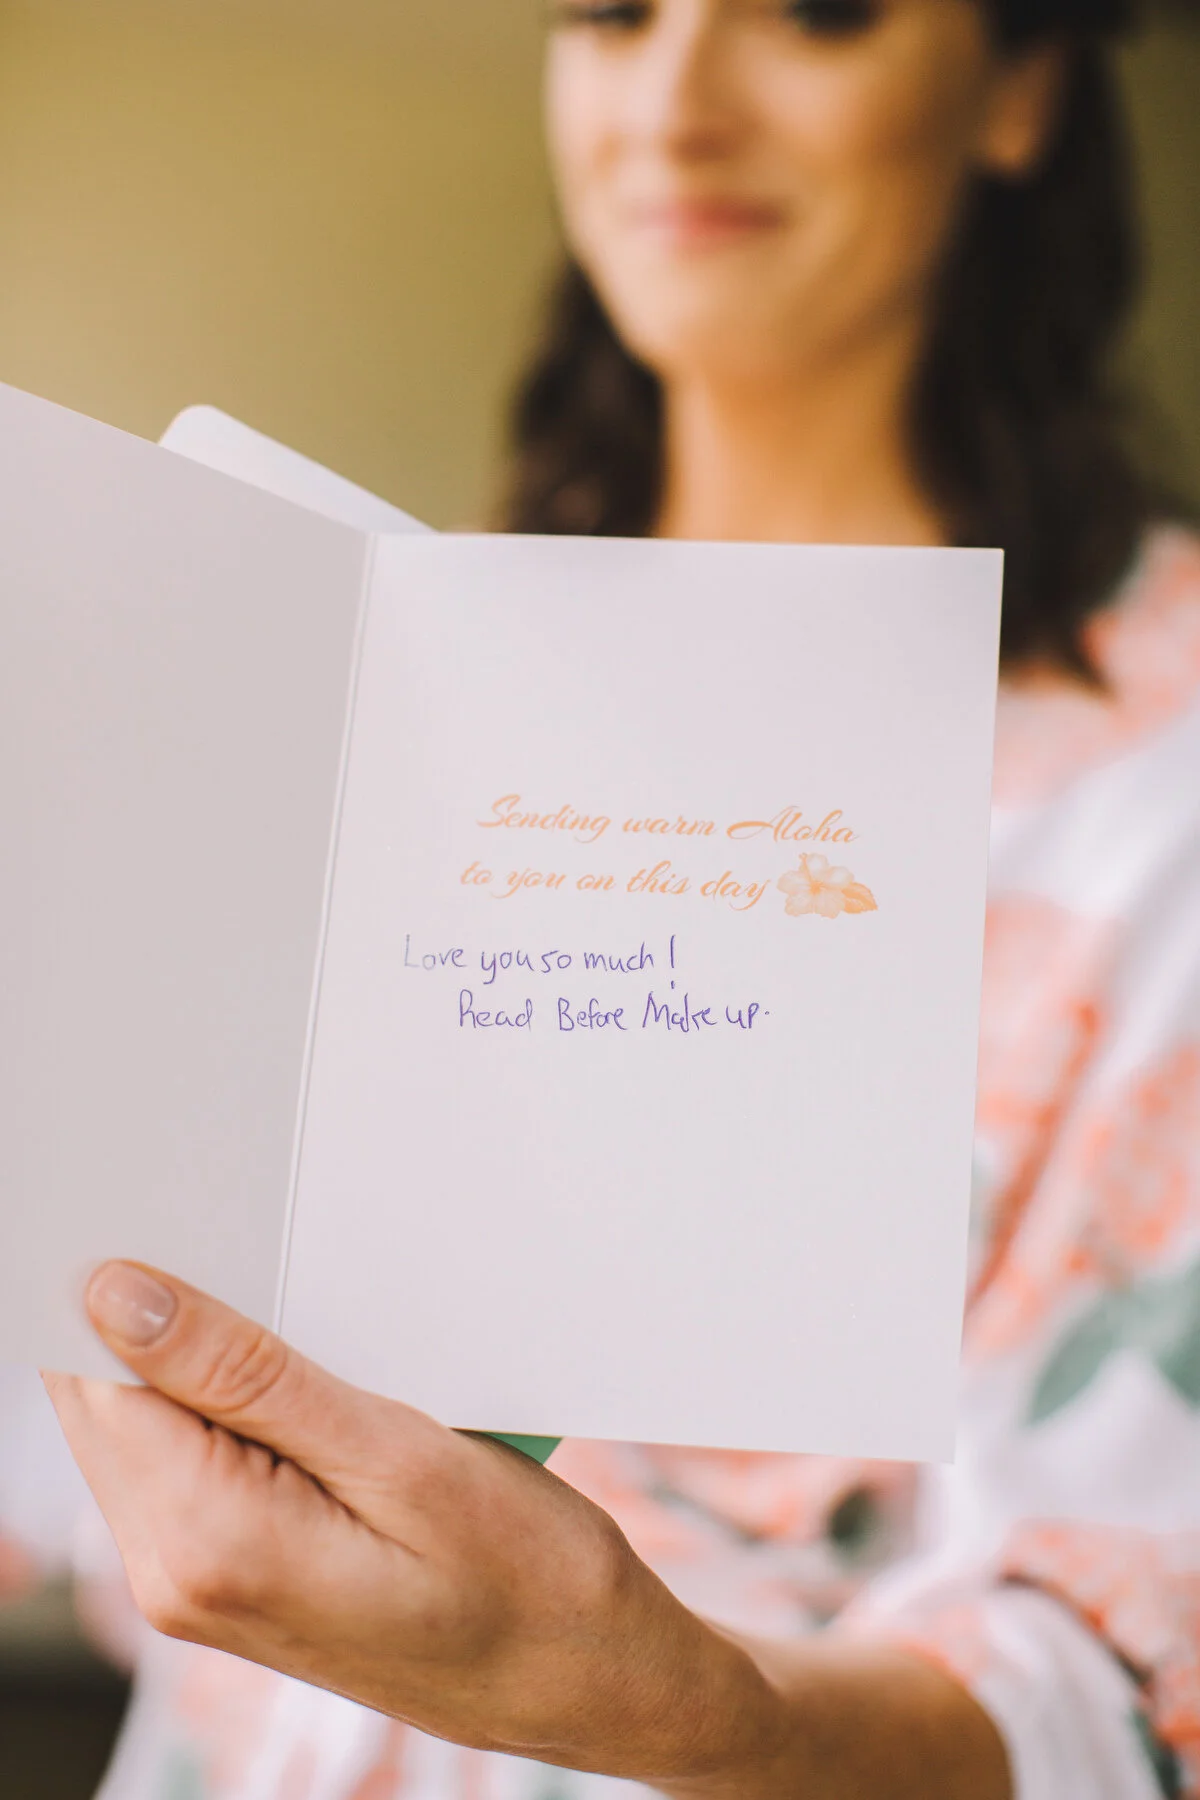 Sending warm Aloha
to you on this day
Love you so much!
Read Before Make up.